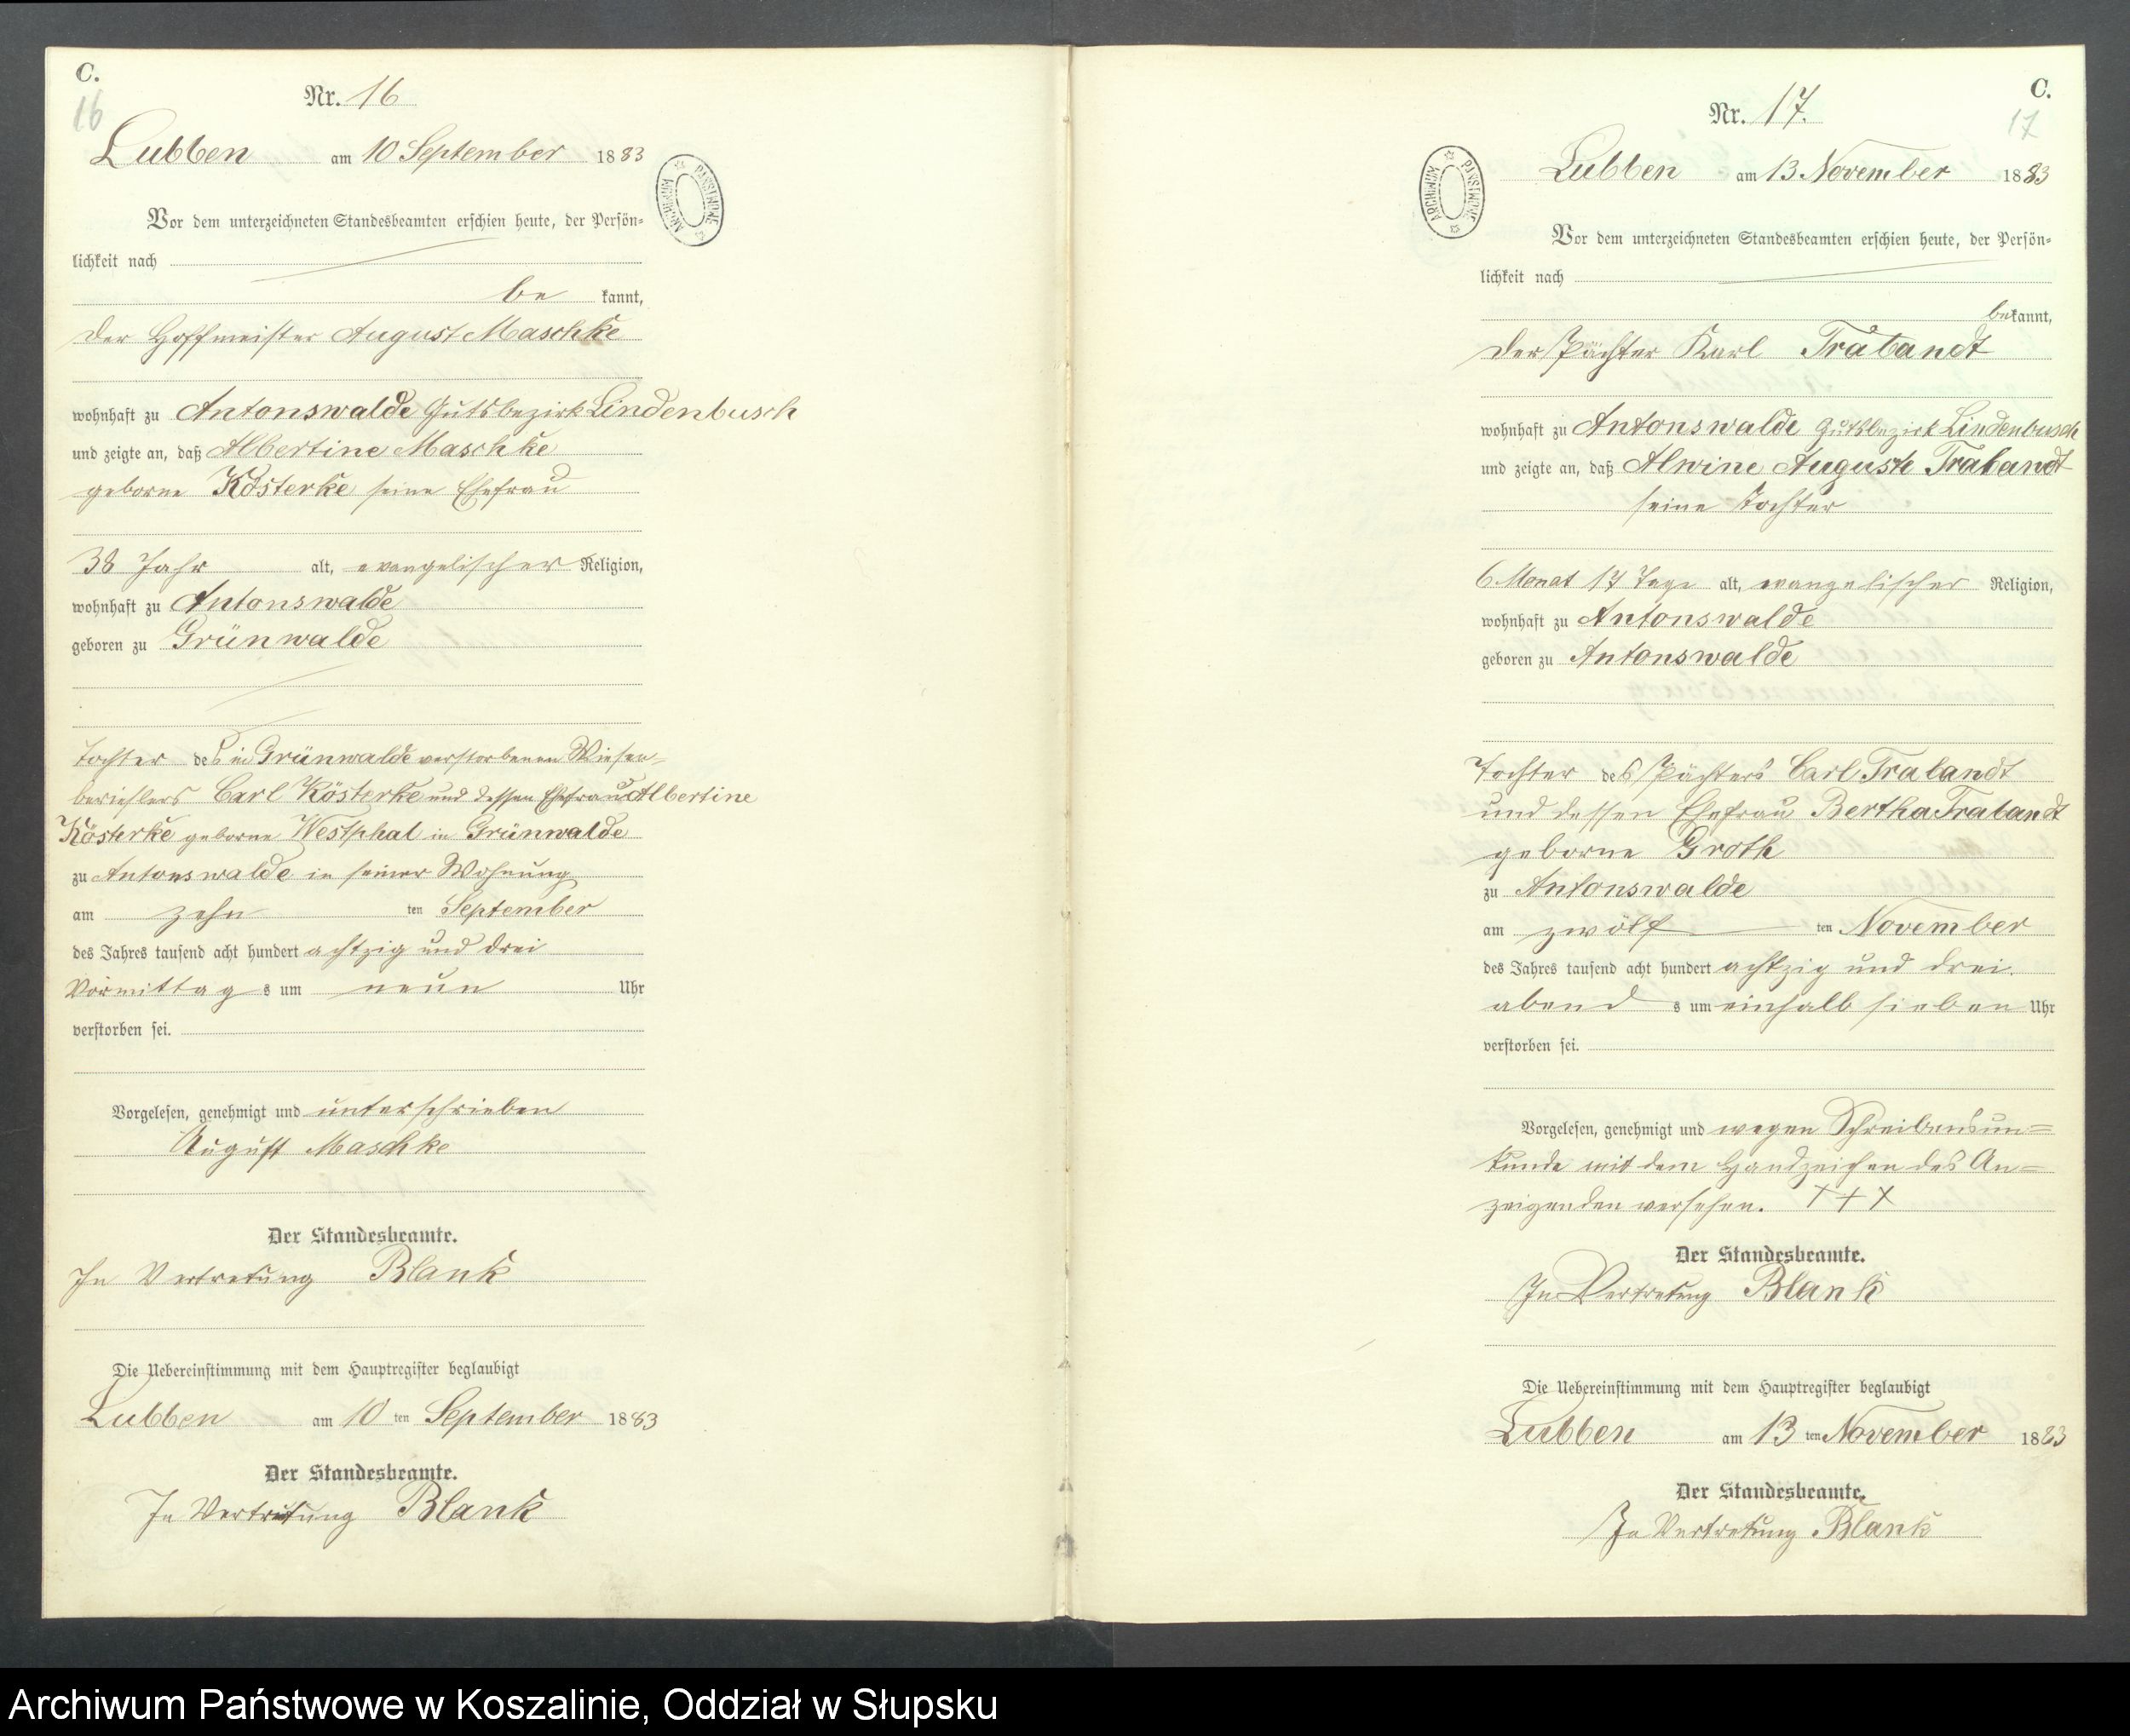 C.
16
Nr. 16
Lubben am 10 September 1883
ARCHIWUM PAŃSTWOWE
Vor dem unterzeichneten Standesbeamten erschien heute, der Persön-
lichkeit nach
be kannt,
der Hoffmeister August Maschke
wohnhaft zu Antonswalde Gutsbezirk Lindenbusch
und zeigte an, daß Albertine Maschke
geborne Kösterke seine Ehefrau
38 Jahr alt, evangelischer Religion,
wohnhaft zu Antonswalde
geboren zu Grünwalde
Tochter des in Grünwalde verstorbenen Wiesen-
berieslers Carl Kösterke und dessen Ehefrau Albertine
Kösterke geborne Westphal in Grünwalde
zu Antonswalde in seiner Wohnung
am zehn ten September
des Jahres tausend acht hundert achtzig und drei
Vormittag s um neun Uhr
verstorben sei.
Vorgelesen, genehmigt und unterschrieben
August Maschke
Der Standesbeamte.
In Vertretung Blank
Die Uebereinstimmung mit dem Hauptregister beglaubigt
Lubben am 10 ten September 1883
Der Standesbeamte.
In Vertretung Blank
C.
17
Nr. 17.
Lubben am 13 November 1883
ARCHIWUM PAŃSTWOWE
Vor dem unterzeichneten Standesbeamten erschien heute, der Persön-
lichkeit nach
bekannt,
der Pächter Karl Trabandt
wohnhaft zu Antonswalde Gutsbezirk Lindenbusch
und zeigte an, daß Alwine Auguste Trabandt
seine Tochter
6 Monat 17 Tage alt, evangelischer Religion,
wohnhaft zu Antonswalde
geboren zu Antonswalde
Tochter des Pächters Carl Trabandt
und dessen Ehefrau Bertha Trabandt
geborne Groth
zu Antonswalde
am zwölf ten November
des Jahres tausend acht hundert achtzig und drei.
abend s um einhalb sieben Uhr
verstorben sei.
Vorgelesen, genehmigt und wegen Schreibensun-
kunde mit dem Handzeichen des An-
zeigenden versehen. + + +
Der Standesbeamte.
In Vertretung Blank
Die Uebereinstimmung mit dem Hauptregister beglaubigt
Lubben am 13 ten November 1883
Der Standesbeamte.
In Vertretung Blank
Archiwum Państwowe w Koszalinie, Oddział w Słupsku